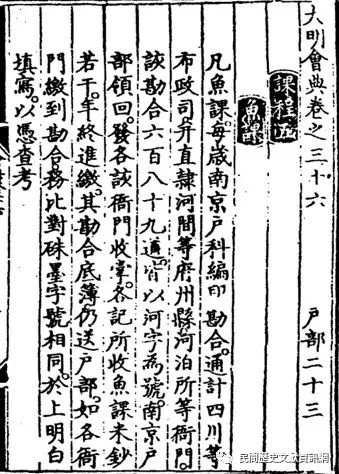 大明會典卷之三十六 戶部二十三
課程五
魚課
凡魚課。每歲南京戶科編印 勘合。通計四川等
布政司。并直隸河間等府州縣河泊所等衙門。
該勘合六百八十九道。皆以河字為號。南京戶
部領回。發各該衙門收掌。各記所收魚課米鈔
若干。年終進繳。其勘合底簿。仍送戶部。如各衙
門繳到勘合。務比對硃墨字號相同。於上明白
填寫。以憑查考
民間歷史文獻資訊網